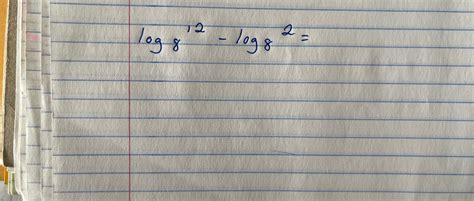 log₈ 12 - log₈ 2 =